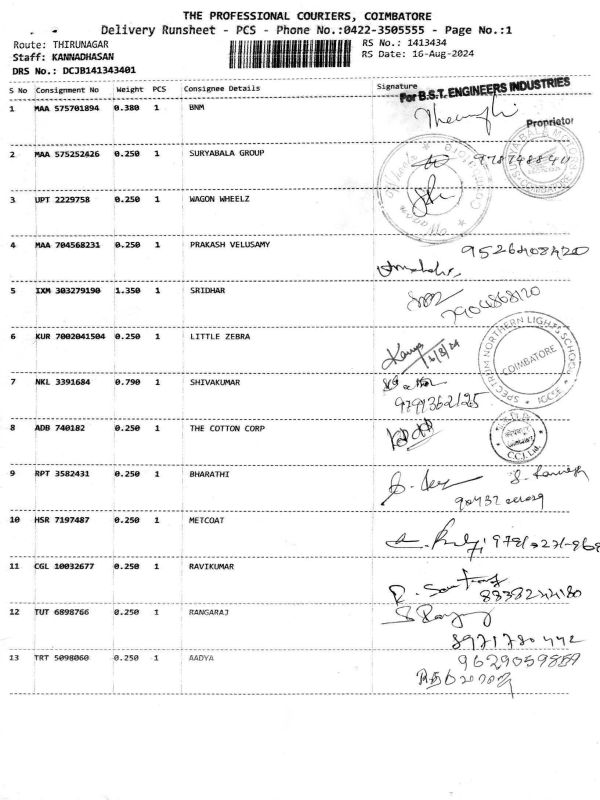 THE PROFESSIONAL COURIERS, COIMBATORE
Delivery Runsheet - PCS - Phone No.:0422-3505555 - Page No.:1
Route: THIRUNAGAR RS No.: 1413434
Staff: KANNADHASAN RS Date: 16-Aug-2024
DRS No.: DCJB141343401
S No Consignment No Weight PCS Consignee Details Signature
For B.S.T. ENGINEERS INDUSTRIES
1 MAA 575701894 0.380 1 BNM
Proprietor
2 MAA 575252426 0.250 1 SURYABALA GROUP
3 UPT 2229758 0.250 1 WAGON WHEELZ
4 MAA 704568231 0.250 1 PRAKASH VELUSAMY
9526408420
5 IXM 303279190 1.350 1 SRIDHAR
7904868120
6 KUR 7002041504 0.250 1 LITTLE ZEBRA
16/8/24
SPECTRUM NORTHERN LIGHTS SCHOOL
COIMBATORE
IGCSE
7 NKL 3391684 0.790 1 SHIVAKUMAR
9791362125
8 ADB 740182 0.250 1 THE COTTON CORP
C.C.I. Ltd.
9 RPT 3582431 0.250 1 BHARATHI
10 HSR 7197487 0.250 1 METCOAT
11 CGL 10032677 0.250 1 RAVIKUMAR
8338244180
12 TUT 6898766 0.250 1 RANGARAJ
8971780442
13 TRT 5098060 0.250 1 AADYA
9629059859